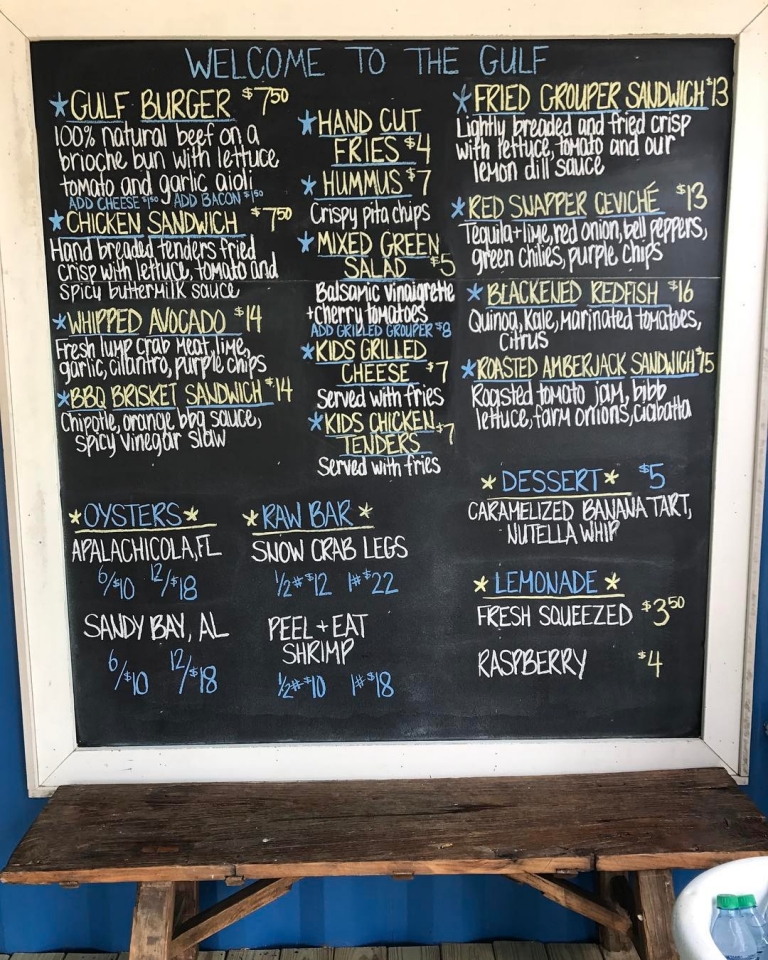 WELCOME TO THE GULF
★GULF BURGER $7.50
100% natural beef on a
brioche bun with lettuce
tomato and garlic aioli
ADD CHEESE $1.50 ADD BACON $1.50
★CHICKEN SANDWICH $7.50
Hand breaded tenders fried
crisp with lettuce, tomato and
spicy buttermilk sauce
★WHIPPED AVOCADO $14
Fresh lump crab meat, lime,
garlic, cilantro, purple chips
★BBQ BRISKET SANDWICH $14
Chipotle, orange, bbq sauce,
spicy vinegar slaw
★HAND CUT
FRIES $4
★HUMMUS $7
Crispy pita chips
★MIXED GREEN
SALAD $5
Balsamic vinaigrette
+cherry tomatoes
ADD GRILLED GROUPER $8
★KIDS GRILLED
CHEESE $7
Served with fries
★KIDS CHICKEN
TENDERS $7
Served with fries
★FRIED GROUPER SANDWICH $13
Lightly breaded and fried crisp
with lettuce, tomato and our
lemon dill sauce
★RED SNAPPER CEVICHÉ $13
Tequila+lime, red onion, bell peppers,
green chilies, purple chips
★BLACKENED REDFISH $16
Quinoa, Kale, Marinated tomatoes,
Citrus
★ROASTED AMBERJACK SANDWICH $15
Roasted tomato jam, bibb
lettuce, farm onions, ciabatta
★OYSTERS★
APALACHICOLA, FL
6/$10 12/$18
SANDY BAY, AL
6/$10 12/$18
★RAW BAR★
SNOW CRAB LEGS
1/2# $12 1# $22
PEEL + EAT
SHRIMP
1/2# $10 1# $18
★DESSERT★ $5
CARAMELIZED BANANA TART,
NUTELLA WHIP
★LEMONADE★
FRESH SQUEEZED $3.50
RASPBERRY $4